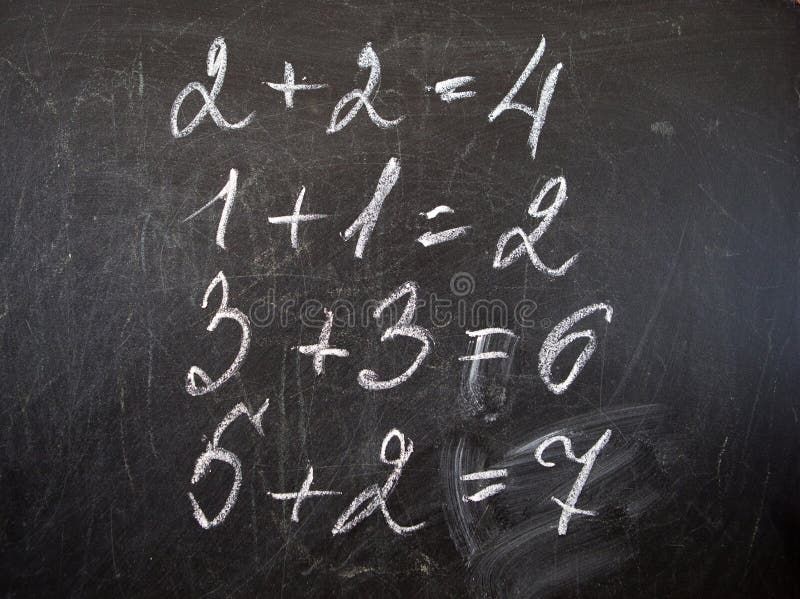 2+2=4
1+1=2
3+3=6
5+2=7
dreamstime
dreamstime
dreamstime